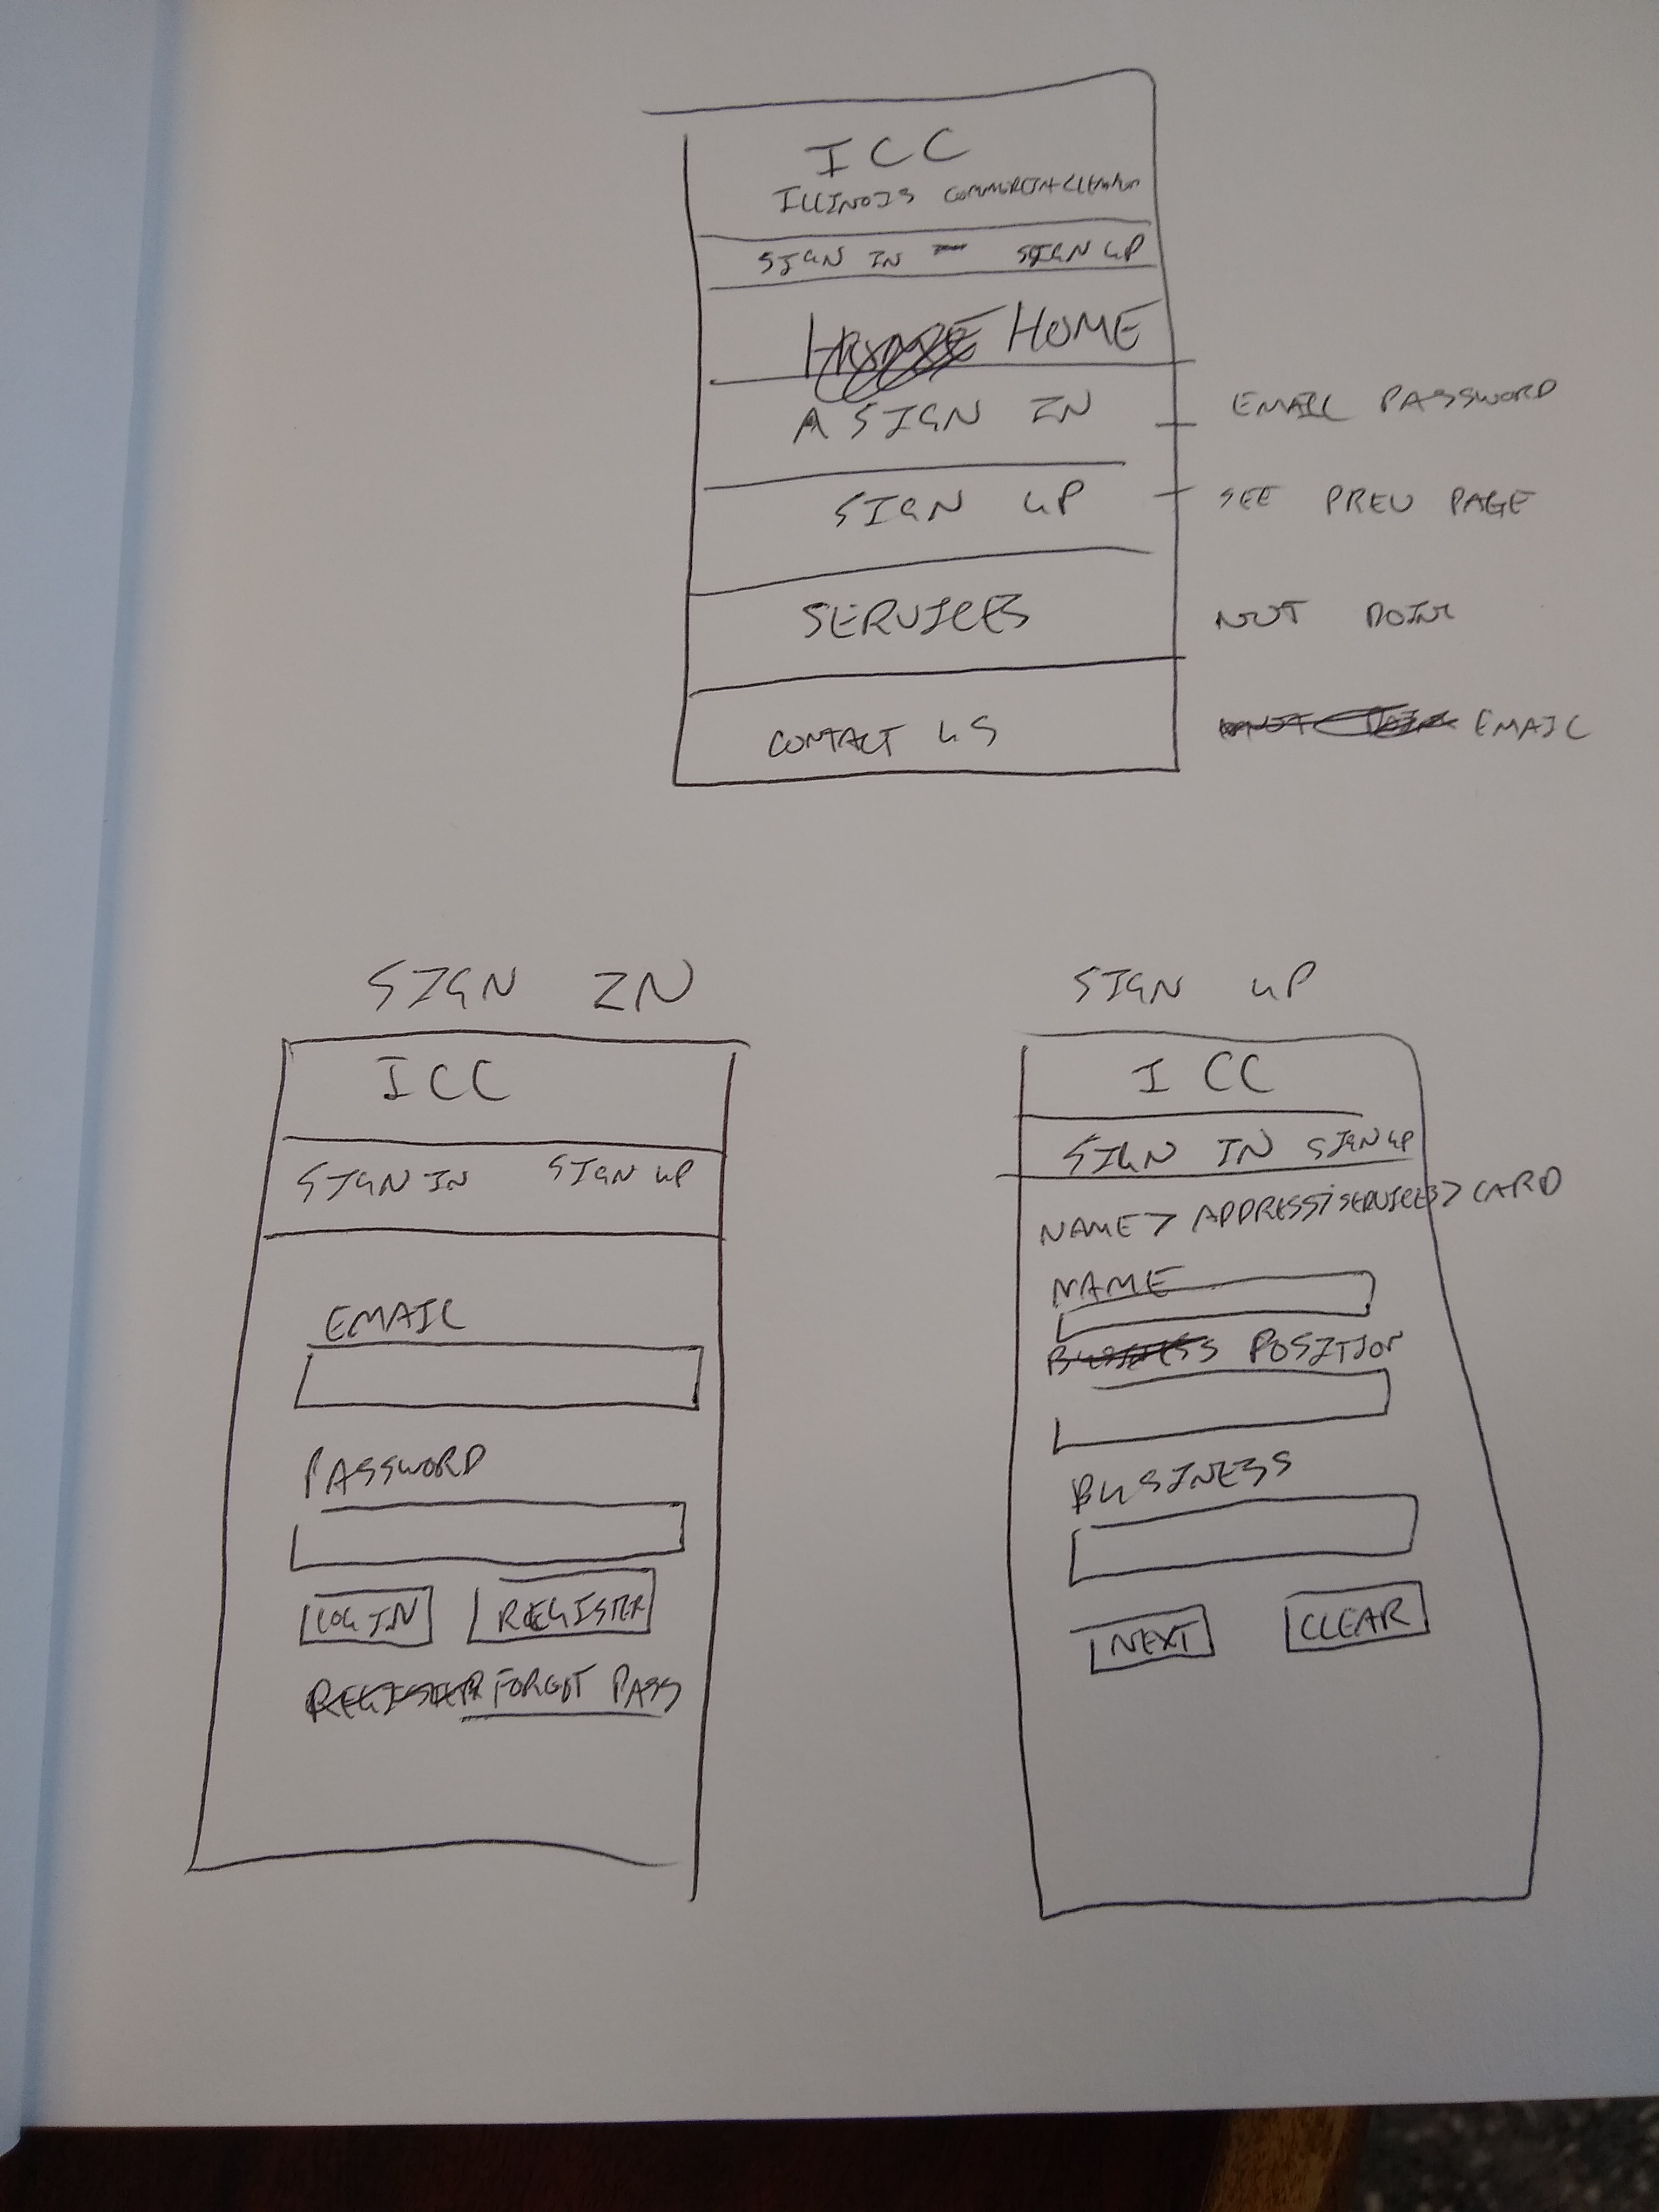 ICC
ILLINOIS COMMERCIAL CLEANING
SIGN IN - SIGN UP
HOME
A SIGN IN
EMAIL PASSWORD
SIGN UP
SEE PREV PAGE
SERVICES
NOT DOIN
CONTACT US
EMAIL
SIGN IN
ICC
SIGN IN SIGN UP
EMAIL
PASSWORD
LOG IN REGISTER
REGISTER FORGOT PASS
SIGN UP
ICC
SIGN IN SIGN UP
NAME > ADDRESS > SERVICES > CARD
NAME
BUSINESS POSITION
BUSINESS
NEXT CLEAR